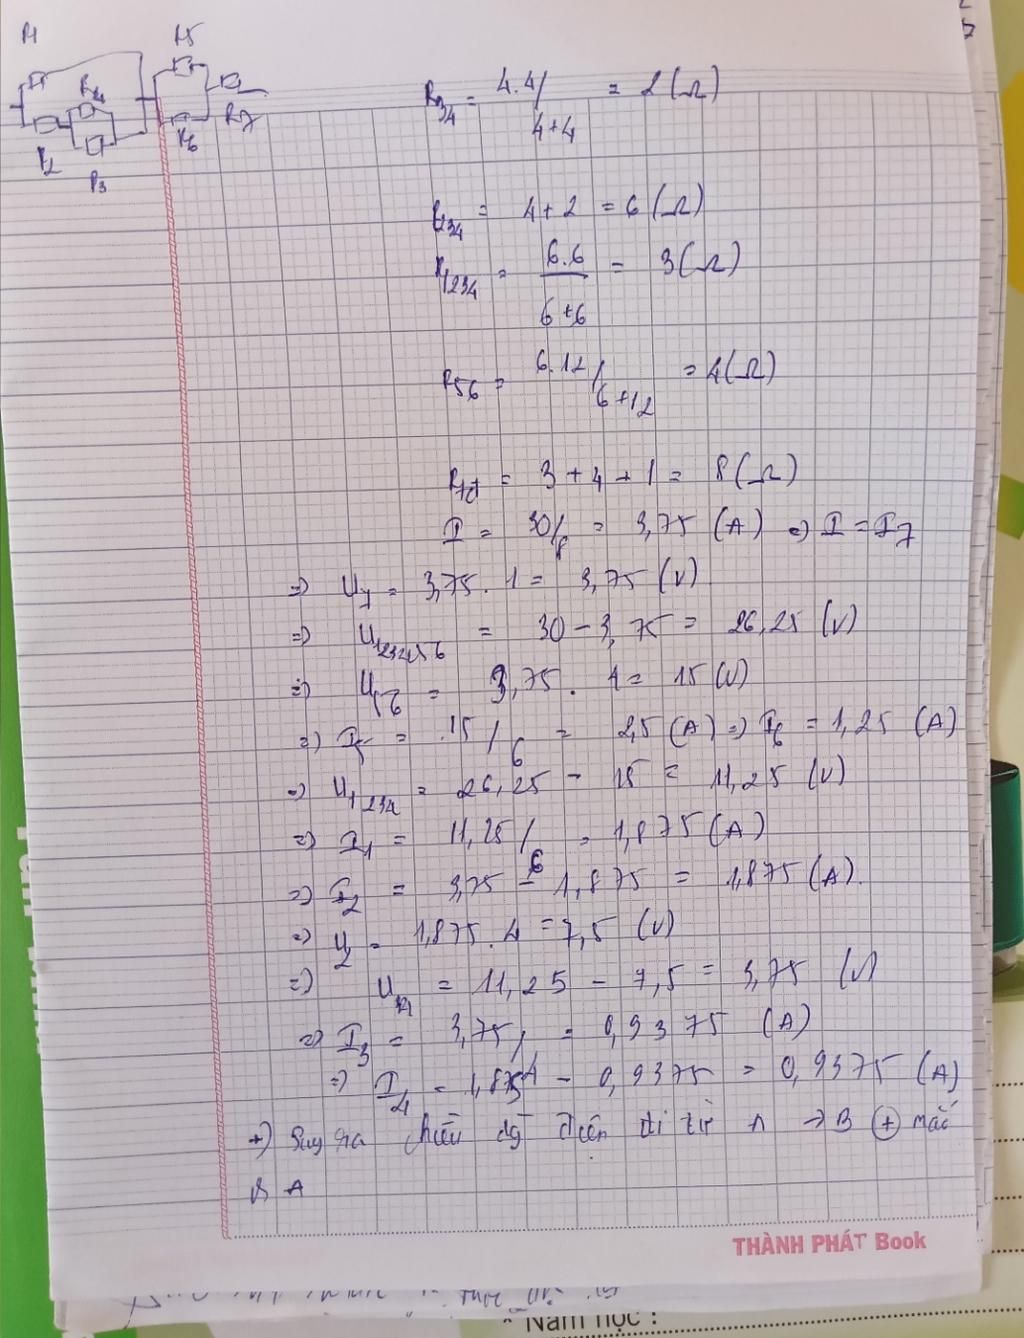 R1
R5
R4
R2
R3
R6
R7
R34 = 4.4/4+4 = 2(Ω)
R234 = 4+2 = 6(Ω)
R1234 = 6.6/6+6 = 3(Ω)
R56 = 6.12/6+12 = 4(Ω)
Rtđ = 3+4+1 = 8(Ω)
I = 30/8 = 3,75 (A) => I = I7
=> U7 = 3,75.1 = 3,75 (V)
=> U123456 = 30-3,75 = 26,25 (V)
=> U56 = 3,75.4 = 15 (V)
=> I5 = 15/6 = 2,5 (A) => I6 = 1,25 (A)
=> U1234 = 26,25 - 15 = 11,25 (V)
=> I1 = 11,25/6 = 1,875 (A)
=> I2 = 3,75 - 1,875 = 1,875 (A).
=> U2 = 1,875.4 = 7,5 (V)
=> U34 = 11,25 - 7,5 = 3,75 (V)
=> I3 = 3,75/4 = 0,9375 (A)
=> I4 = 1,875 - 0,9375 = 0,9375 (A)
=> Suy ra chiều dg điện đi từ A -> B (+) mắc
A
THÀNH PHÁT Book
* Năm học :